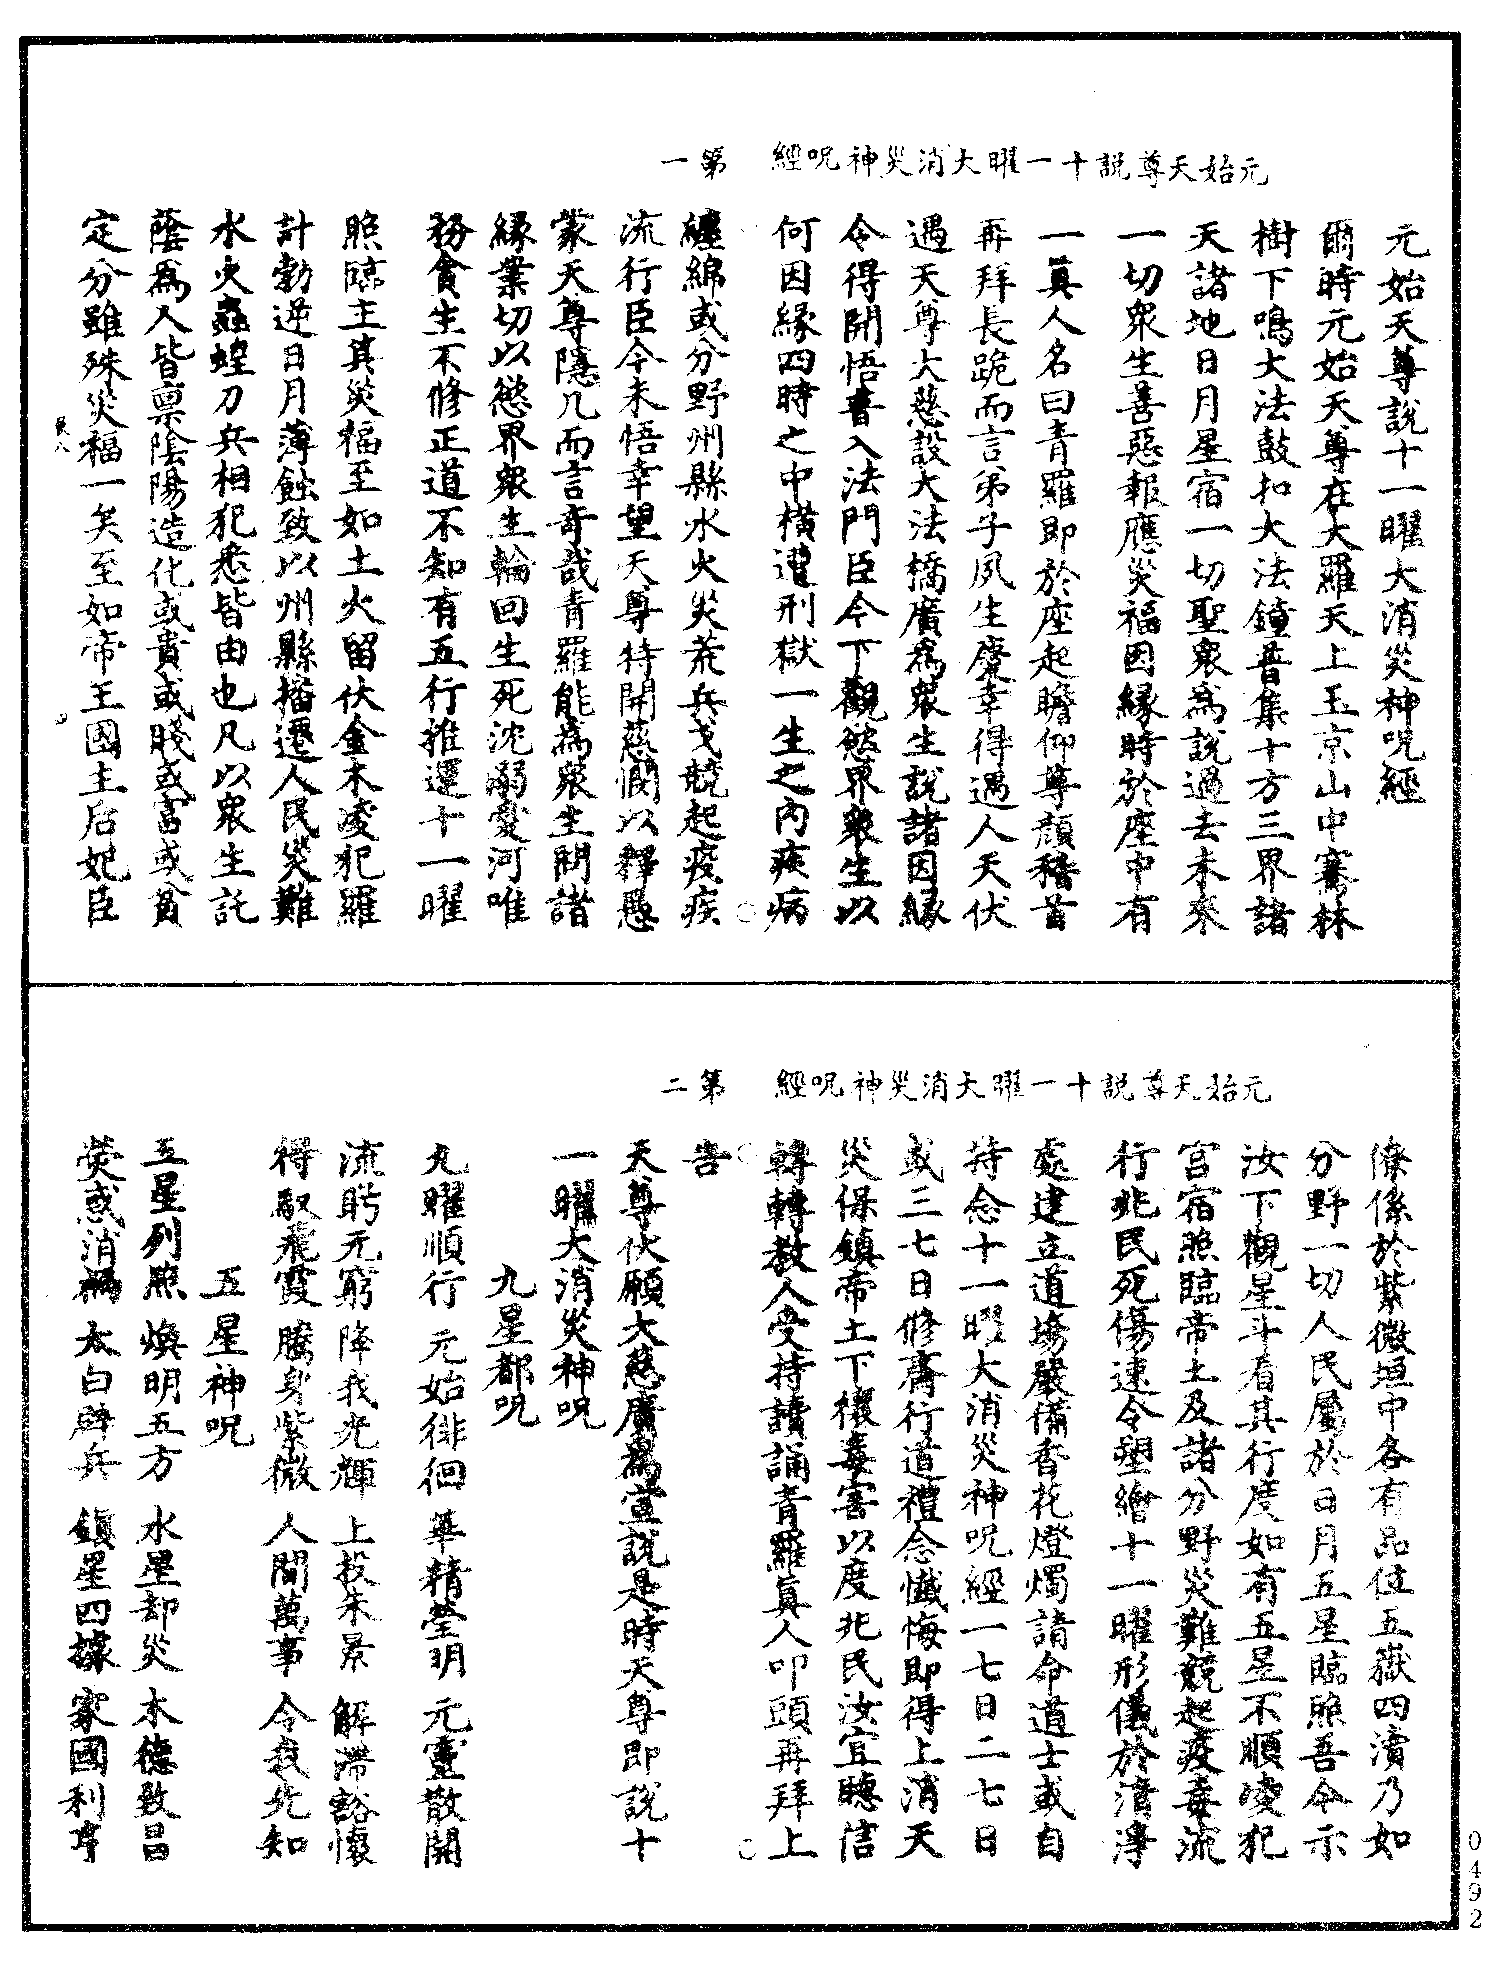 元始天尊説十一曜大消災神呪經 第一
元始天尊說十一曜大消災神呪經
爾時元始天尊在大羅天上玉京山中騫林
樹下鳴大法鼓扣大法鐘普集十方三界諸
天諸地日月星宿一切聖衆爲說過去未來
一切衆生善惡報應災福因緣時於座中有
一真人名曰青羅即於座起瞻仰尊顔稽首
再拜長跪而言弟子夙生慶幸得遇人天伏
遇天尊大慈設大法橋廣爲衆生說諸因緣
令得開悟書入法門臣今下觀慾界衆生以
何因緣四時之中橫遭刑獄一生之內疾病
纏綿或分野州縣水火災荒兵戈競起疫疾
流行臣今未悟幸望天尊特開慈憫以釋愚
蒙天尊隱几而言奇哉青羅能爲衆生問諸
緣業切以慾界衆生輪回生死沈溺愛河唯
務貪生不修正道不知有五行推遷十一曜
照臨主其災福至如土火留伏金木凌犯羅
計勃逆日月薄蝕致以州縣播遷人民災難
水火蟲蝗刀兵相犯悉皆由也凡以衆生託
蔭爲人皆禀陰陽造化或貴或賤或富或貧
定分雖殊災福一矣至如帝王國主后妃臣
元始天尊説十一曜大消災神呪經 第二
僚係於紫微垣中各有品位五嶽四瀆乃如
分野一切人民屬於日月五星臨照吾今示
汝下觀星斗看其行度如有五星不順凌犯
宮宿照臨帝土及諸分野災難競起疫毒流
行兆民死傷速令塑繪十一曜形儀於清淨
處建立道場嚴備香花燈燭請命道士或自
持念十一曜大消災神呪經一七日二七日
或三七日修齋行道禮念懺悔即得上消天
災保鎮帝土下禳毒害以度兆民汝宜聽信
轉轉教人受持讀誦青羅真人叩頭再拜上
告
天尊伏願大慈廣爲宣說是時天尊即說十
一曜大消災神呪
九星都呪
九曜順行 元始徘徊 華精瑩明 元靈散開
流眄无窮 降我光輝 上投朱景 解滯豁懷
得馭飛霞 騰身紫微 人間萬事 令我先知
五星神呪
五星列照 煥明五方 水星却災 木德致昌
熒惑消禍 太白辟兵 鎮星四據 家國利亨
0492